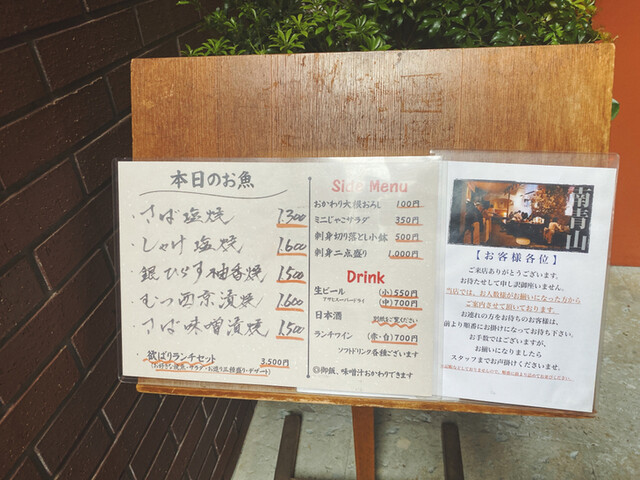 本日のお魚
・さば塩焼 1,300
・しゃけ塩焼 1,600
・銀ひらす柚香焼 1,500
・むつ西京漬焼 1,600
・さば味噌漬焼 1,500
・欲ばりランチセット 3,500円
Side Menu
おかわり大根おろし 100円
ミニじゃこサラダ 350円
刺身切り落とし小鉢 500円
刺身二点盛り 1,000円
Drink
生ビール (小)550円
アサヒスーパードライ (中)700円
日本酒 別紙をご覧ください
ランチワイン (赤・白)700円
ソフトドリンク各種ございます
◎御飯、味噌汁おかわりできます
南青山
【お客様各位】
ご来店ありがとうございます。
お待たせして申し訳御座いません。
当店では、お人数様がお揃いになった方から
ご案内させて頂いております。
お連れの方をお待ちのお客様は、
前より順番にお掛けになってお待ち下さい。
お手数ではございますが、
お揃いになりましたら
スタッフまでお声掛けくださいませ。